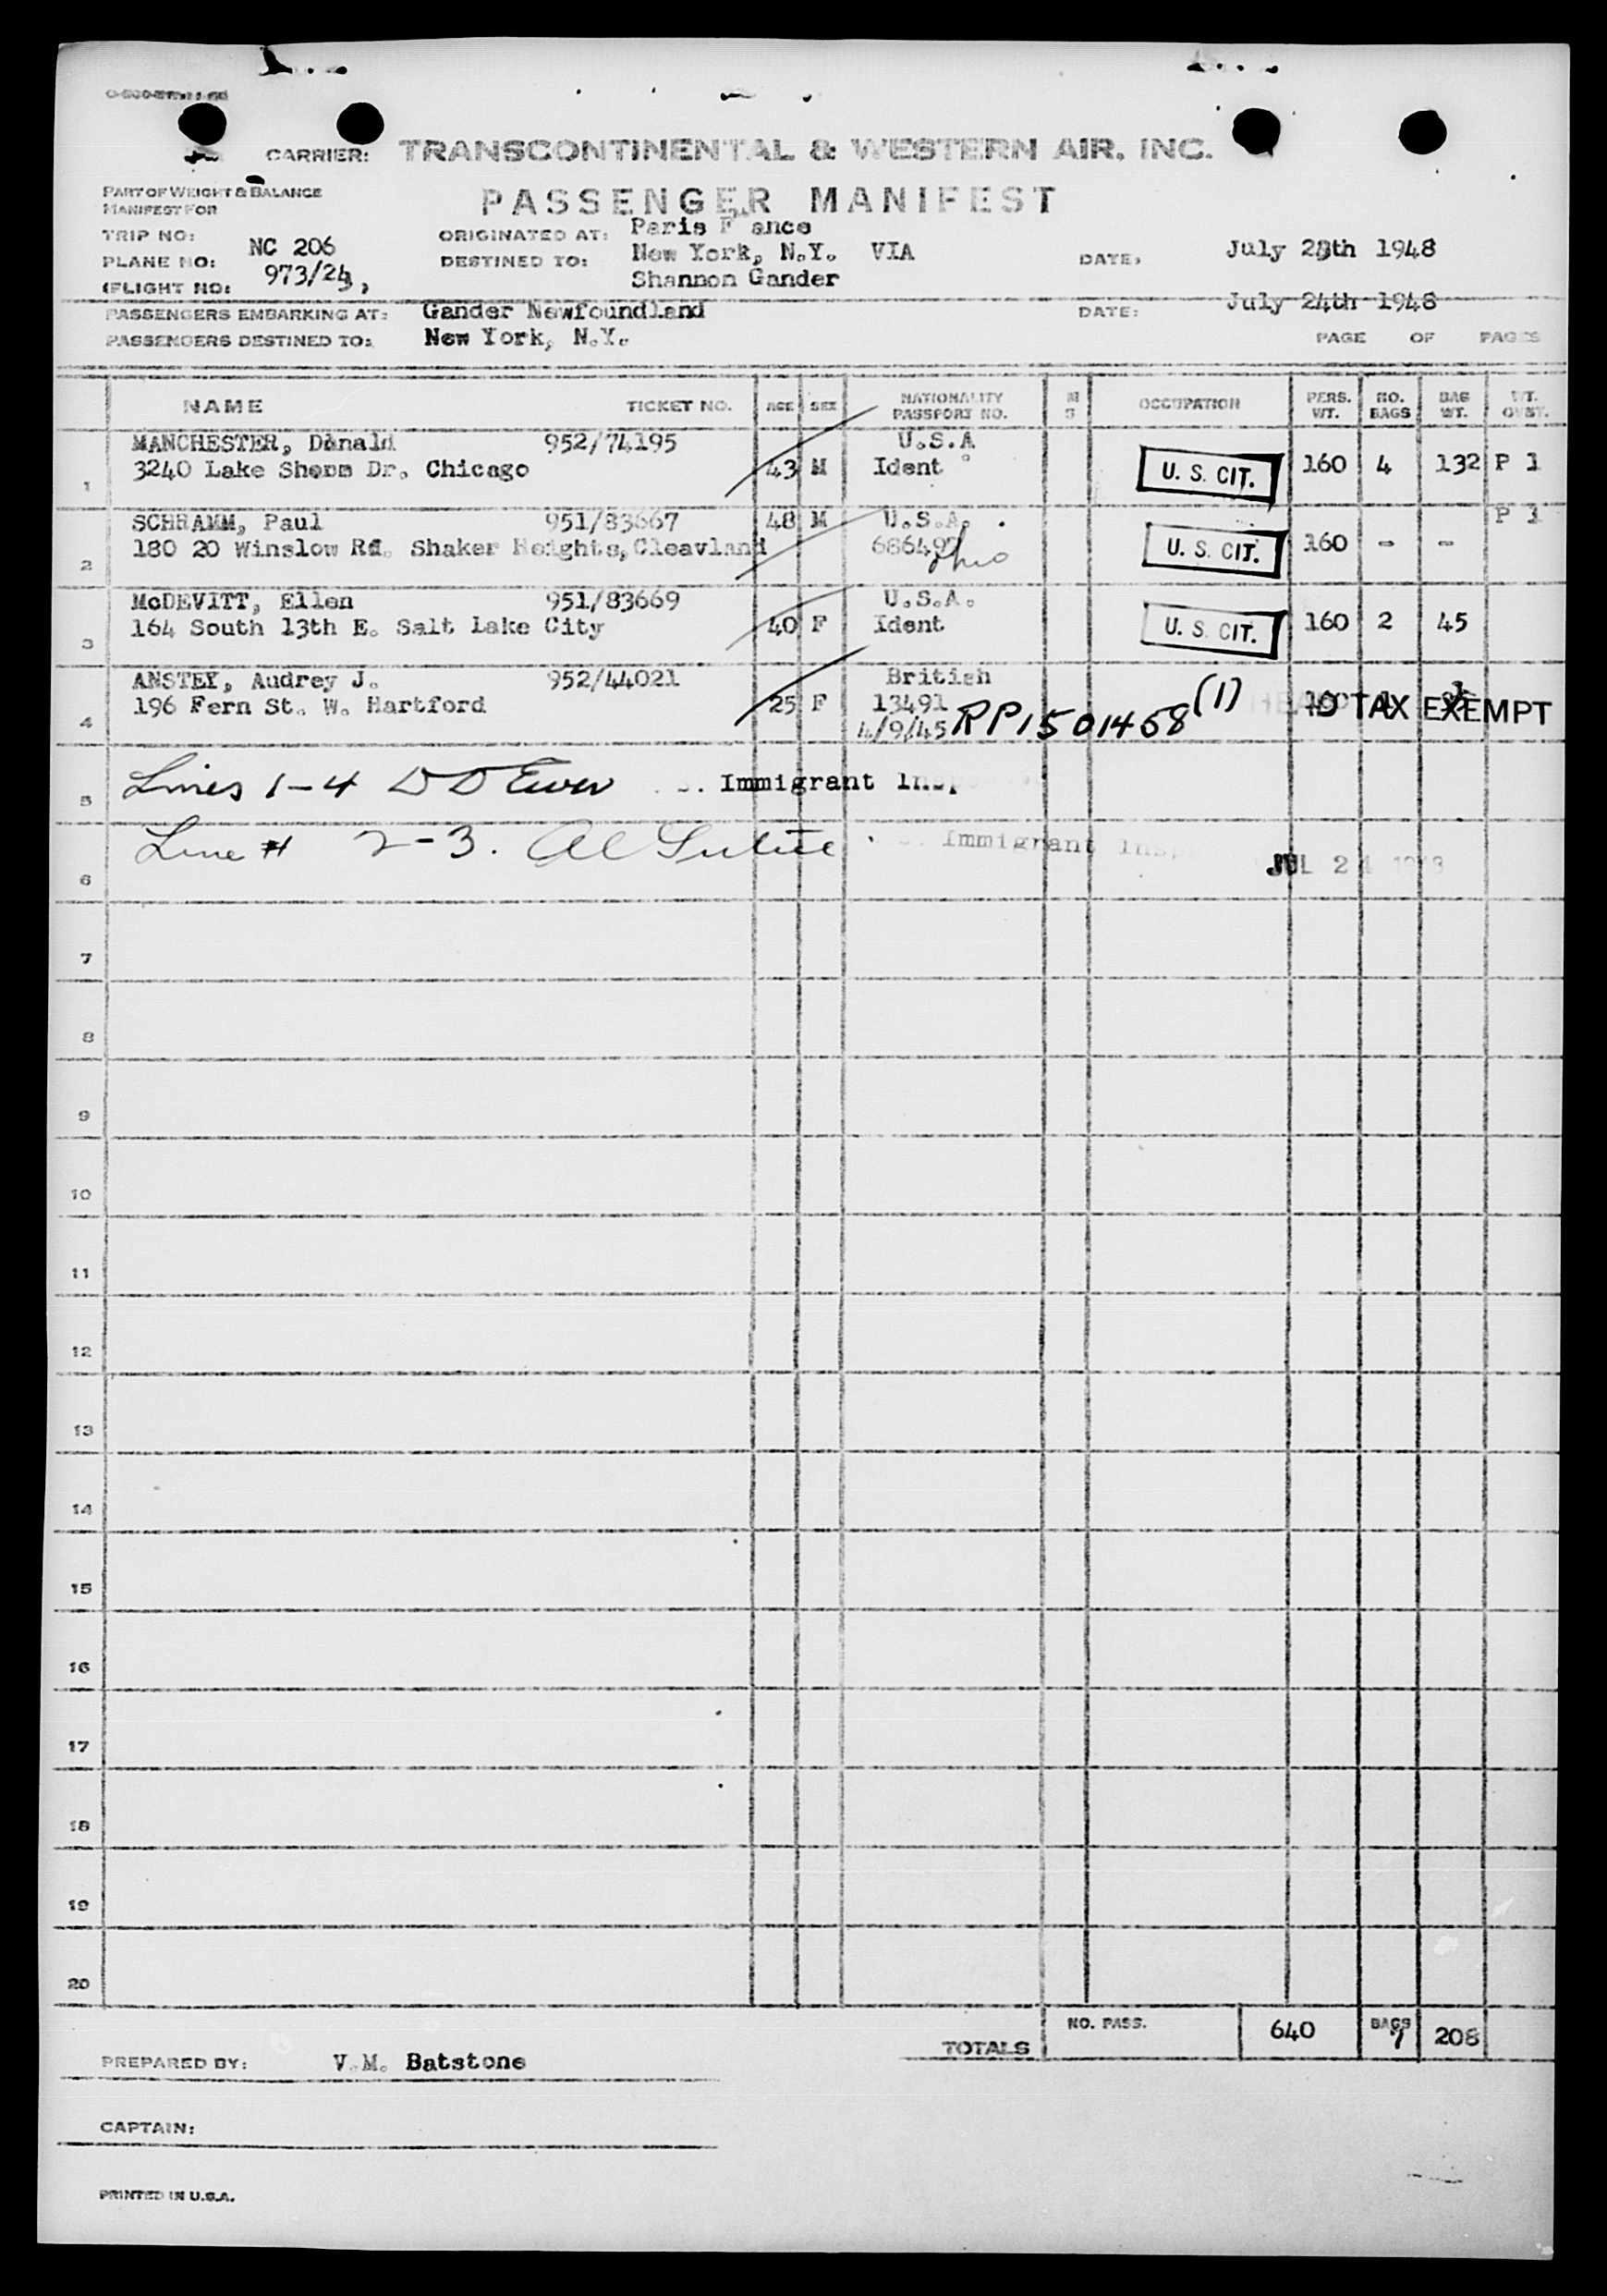 CARRIER: TRANSCONTINENTAL & WESTERN AIR, INC.
PART OF WEIGHT & BALANCE
MANIFEST FOR
PASSENGER MANIFEST
TRIP NO: NC 206
PLANE NO: 973/24,
(FLIGHT NO:
ORIGINATED AT: Paris F ance
DESTINED TO: New York, N.Y. VIA
Shannon Gander
DATE, July 23th 1948
PASSENGERS EMBARKING AT: Gander Newfoundland
DATE: July 24th 1948
PASSENGERS DESTINED TO: New York, N.Y.
PAGE OF PAGES
NAME TICKET NO. AGE SEX NATIONALITY PASSPORT NO. M S OCCUPATION PERS. WT. NO. BAGS BAG WT. WT. OVST.
MANCHESTER, Donald 952/74195 U.S.A
1 3240 Lake Shore Dr. Chicago 43 M Ident U. S. CIT. 160 4 132 P 1
SCHRAMM, Paul 951/83667 48 M U.S.A. P 1
2 180 20 Winslow Rd. Shaker Heights, Cleavland Ohio 686497 U. S. CIT. 160 - -
McDEVITT, Ellen 951/83669 U.S.A.
3 164 South 13th E. Salt Lake City 40 F Ident U. S. CIT. 160 2 45
ANSTEY, Audrey J. 952/44021 British
4 196 Fern St. W. Hartford 25 F 13491 HEAD TAX EXEMPT
4/9/45 RP1501468 (1)
5 Lines 1-4 Immigrant
6 Line # 2-3. Immigrant
JUL 24 1948
7
8
9
10
11
12
13
14
15
16
17
18
19
20
TOTALS NO. PASS. 640 BAGS 7 208
PREPARED BY: V.M. Batstone
CAPTAIN:
PRINTED IN U.S.A.